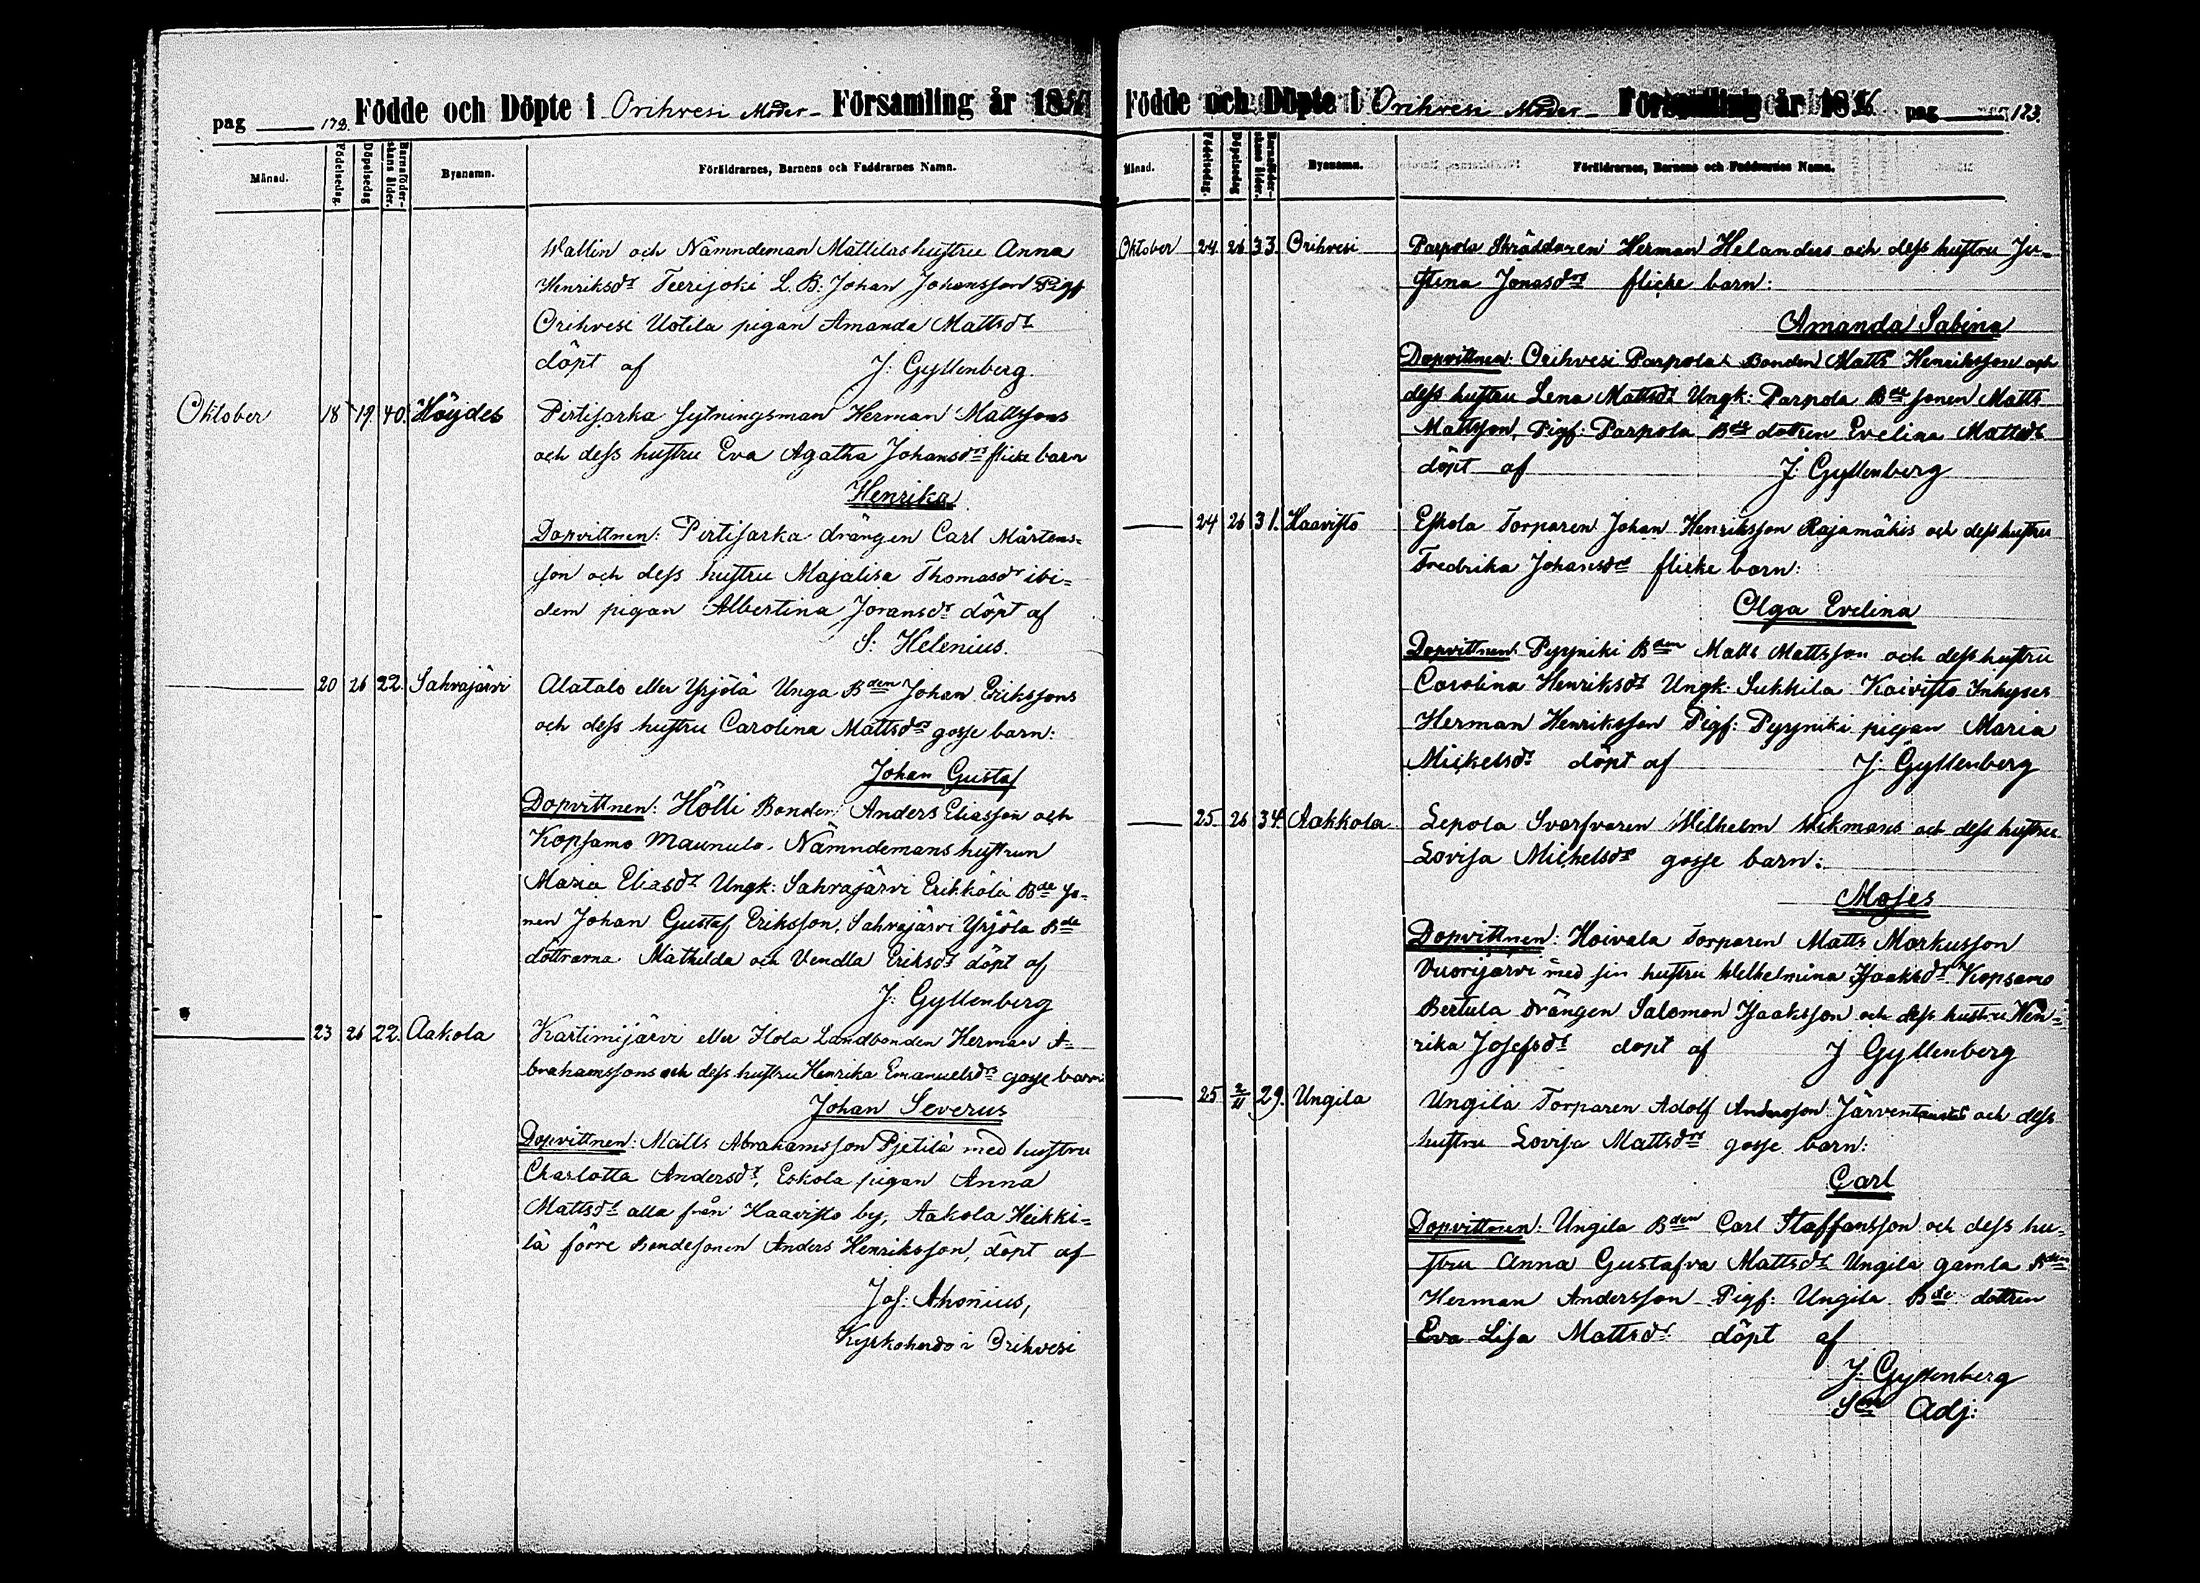 pag 172. Födde och Döpte i Orihvesi Moder- Församling år 18
Månad. Födelsedag. Döpelsedag Barnaföderskans ålder. Byanamn. Föräldrarnes, Barnens och Faddrarnes Namn.
Wallin och Nämndeman Mattilas huſtru Anna
Henriksdr Teerijoki L. B. Johan Johansſon Pigf
Orihvesi Uotila pigan Amanda Mattsdr
döpt af J: Gyllenberg.
Oktober 18 19 40. Höijdes Pirtiſarka ſytningsman Herman Mattsſons
och deſs huſtru Eva Agatha Johansdrs flicke barn
Henrika
Dopvittnen: Pirtiſarka drängen Carl Mårtens-
ſon och deſs huſtru Majalisa Thomasdr ibi-
dem pigan Albertina Joransdr döpt af
S: Helenius.
20 26 22. Sahrajärvi Alatalo eller Yrjölä Unga Bden Johan Eriksſons
och deſs huſtru Carolina Mattsdrs gosſe barn:
Johan Gustaf
Dopvittnen: Hölli Bonden Anders Eliasſon och
Kopſamo Maunula Nämndemans huſtrun
Maria Eliasdr Ungk: Sahrajärvi Erikkölä Bde ſo-
nen Johan Gustaf Eriksſon, Sahrajärvi Yrjölä Bde
döttrarna Mathilda och Vendla Eriksdr döpt af
J: Gyllenberg
23 26 22. Aakola Kartimijärvi eller Ilola Landbonden Herman A-
brahamsſons och deſs huſtru Henrika Emanuelsdrs gosſe barn
Johan Severus
Dopvittnen: Matts Abrahamsſon Pjetilä med huſtru
Charlotta Andersdr, Eskola pigan Anna
Mattsdr alla från Haaviſto by, Aakola Heikki-
lä förre Bondeſonen Anders Henriksſon, döpt af
Joſ: Ahonius,
Kyrkoherde i Orihvesi
Födde och Döpte i Orihvesi Moder- Församling år 18 pag 173.
Månad. Födelsedag. Döpelsedag Barnaföderskans ålder. Byanamn. Föräldrarnes, Barnens och Faddrarnes Namn.
Oktober 24 26 33. Orihvesi Parpola Skräddaren Herman Helanders och deſs huſtru Ju-
ſtina Jonasdrs flicke barn:
Amanda Sabina
Dopvittnen: Orihvesi Parpola Bonden Matts Henriksſon och
deſs huſtru Lena Mattsdr Ungk: Parpola Bde ſonen Matts
Mattsſon, Pigf: Parpola Bde dottren Evelina Mattsdr
döpt af J: Gyllenberg
24 26 31. Haaviſto Eſkola Torparen Johan Henriksſon Rajamäkis och deſs huſtru
Fredrika Johansdrs flicke barn:
Olga Evelina
Dopvittnen: Pyyniki Bden Matts Mattsſon och deſs huſtru
Carolina Henriksdr Ungk: Sukkila Koiviſto Inhyses
Herman Henriksſon Pigf: Pyyniki pigan Maria
Mickelsdr döpt af J: Gyllenberg
25 26 34. Aakkola Lepola Svarfvaren Wilhelm Wikmans och deſs huſtru
Loviſa Michelsdrs gosſe barn:
Moſes
Dopvittnen: Hoivala Torparen Matts Markusſon
Vuorijärvi med ſin huſtru Wilhelmina Iſaaksdr Kopsamo
Bertula drängen Salomon Iſaaksſon och deſs hustru Hen-
rika Joſefsdr döpt af J Gyllenberg
25 2/11 29. Ungila Ungila Torparen Adolf Andersſon Järventaustas och deſs
huſtru Loviſa Mattsdrs gosſe barn:
Carl
Dopvittnen: Ungila Bden Carl Staffansſon och deſs hu-
ſtru Anna Guſtafva Mattsdr Ungila gamla Bden
Herman Andersſon Pigf: Ungila Bde dottren
Eva Liſa Mattsdr döpt af
J: Gyllenberg
Adj: